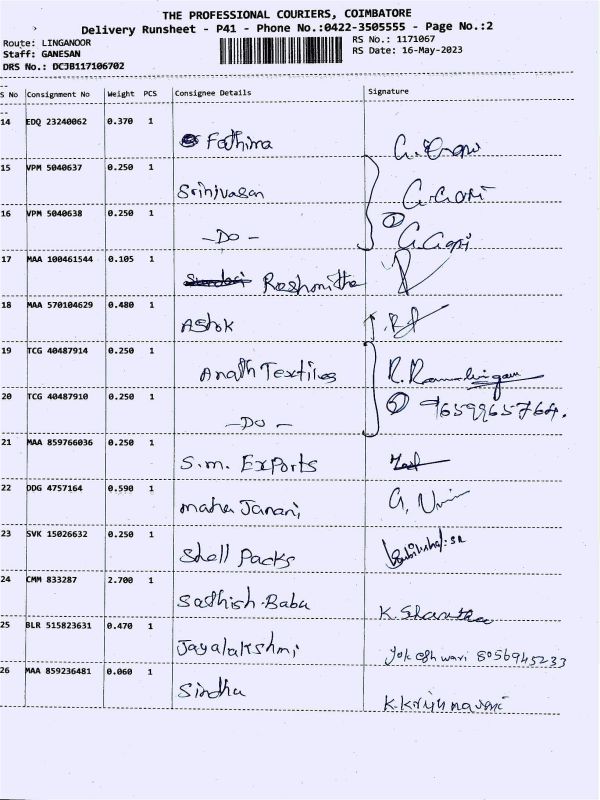 THE PROFESSIONAL COURIERS, COIMBATORE
Delivery Runsheet - P41 - Phone No.:0422-3505555 - Page No.:2
Route: LINGANOOR
Staff: GANESAN
DRS No.: DCJB117106702
RS No.: 1171067
RS Date: 16-May-2023
S No Consignment No Weight PCS Consignee Details Signature
14 EDQ 23240062 0.370 1 Fathima
15 VPM 5040637 0.250 1 Srinivasan G.Gopi
16 VPM 5040638 0.250 1 -Do- ② G.Gopi
17 MAA 100461544 0.105 1 Roshonitha
18 MAA 570104629 0.480 1 Ashok
19 TCG 40487914 0.250 1 Anath Textiles R.Ramalingam
20 TCG 40487910 0.250 1 -Do- ② 9659965764.
21 MAA 859766036 0.250 1 S.m. Exports
22 DDG 4757164 0.590 1 maha Janani
23 SVK 15026632 0.250 1 Shell Packs
24 CMM 833287 2.700 1 Sathish.Babu K.Shantha
25 BLR 515823631 0.470 1 Jayalakshmi Yokeshwari 8056945233
26 MAA 859236481 0.060 1 Sindhu K.Krishnaveni